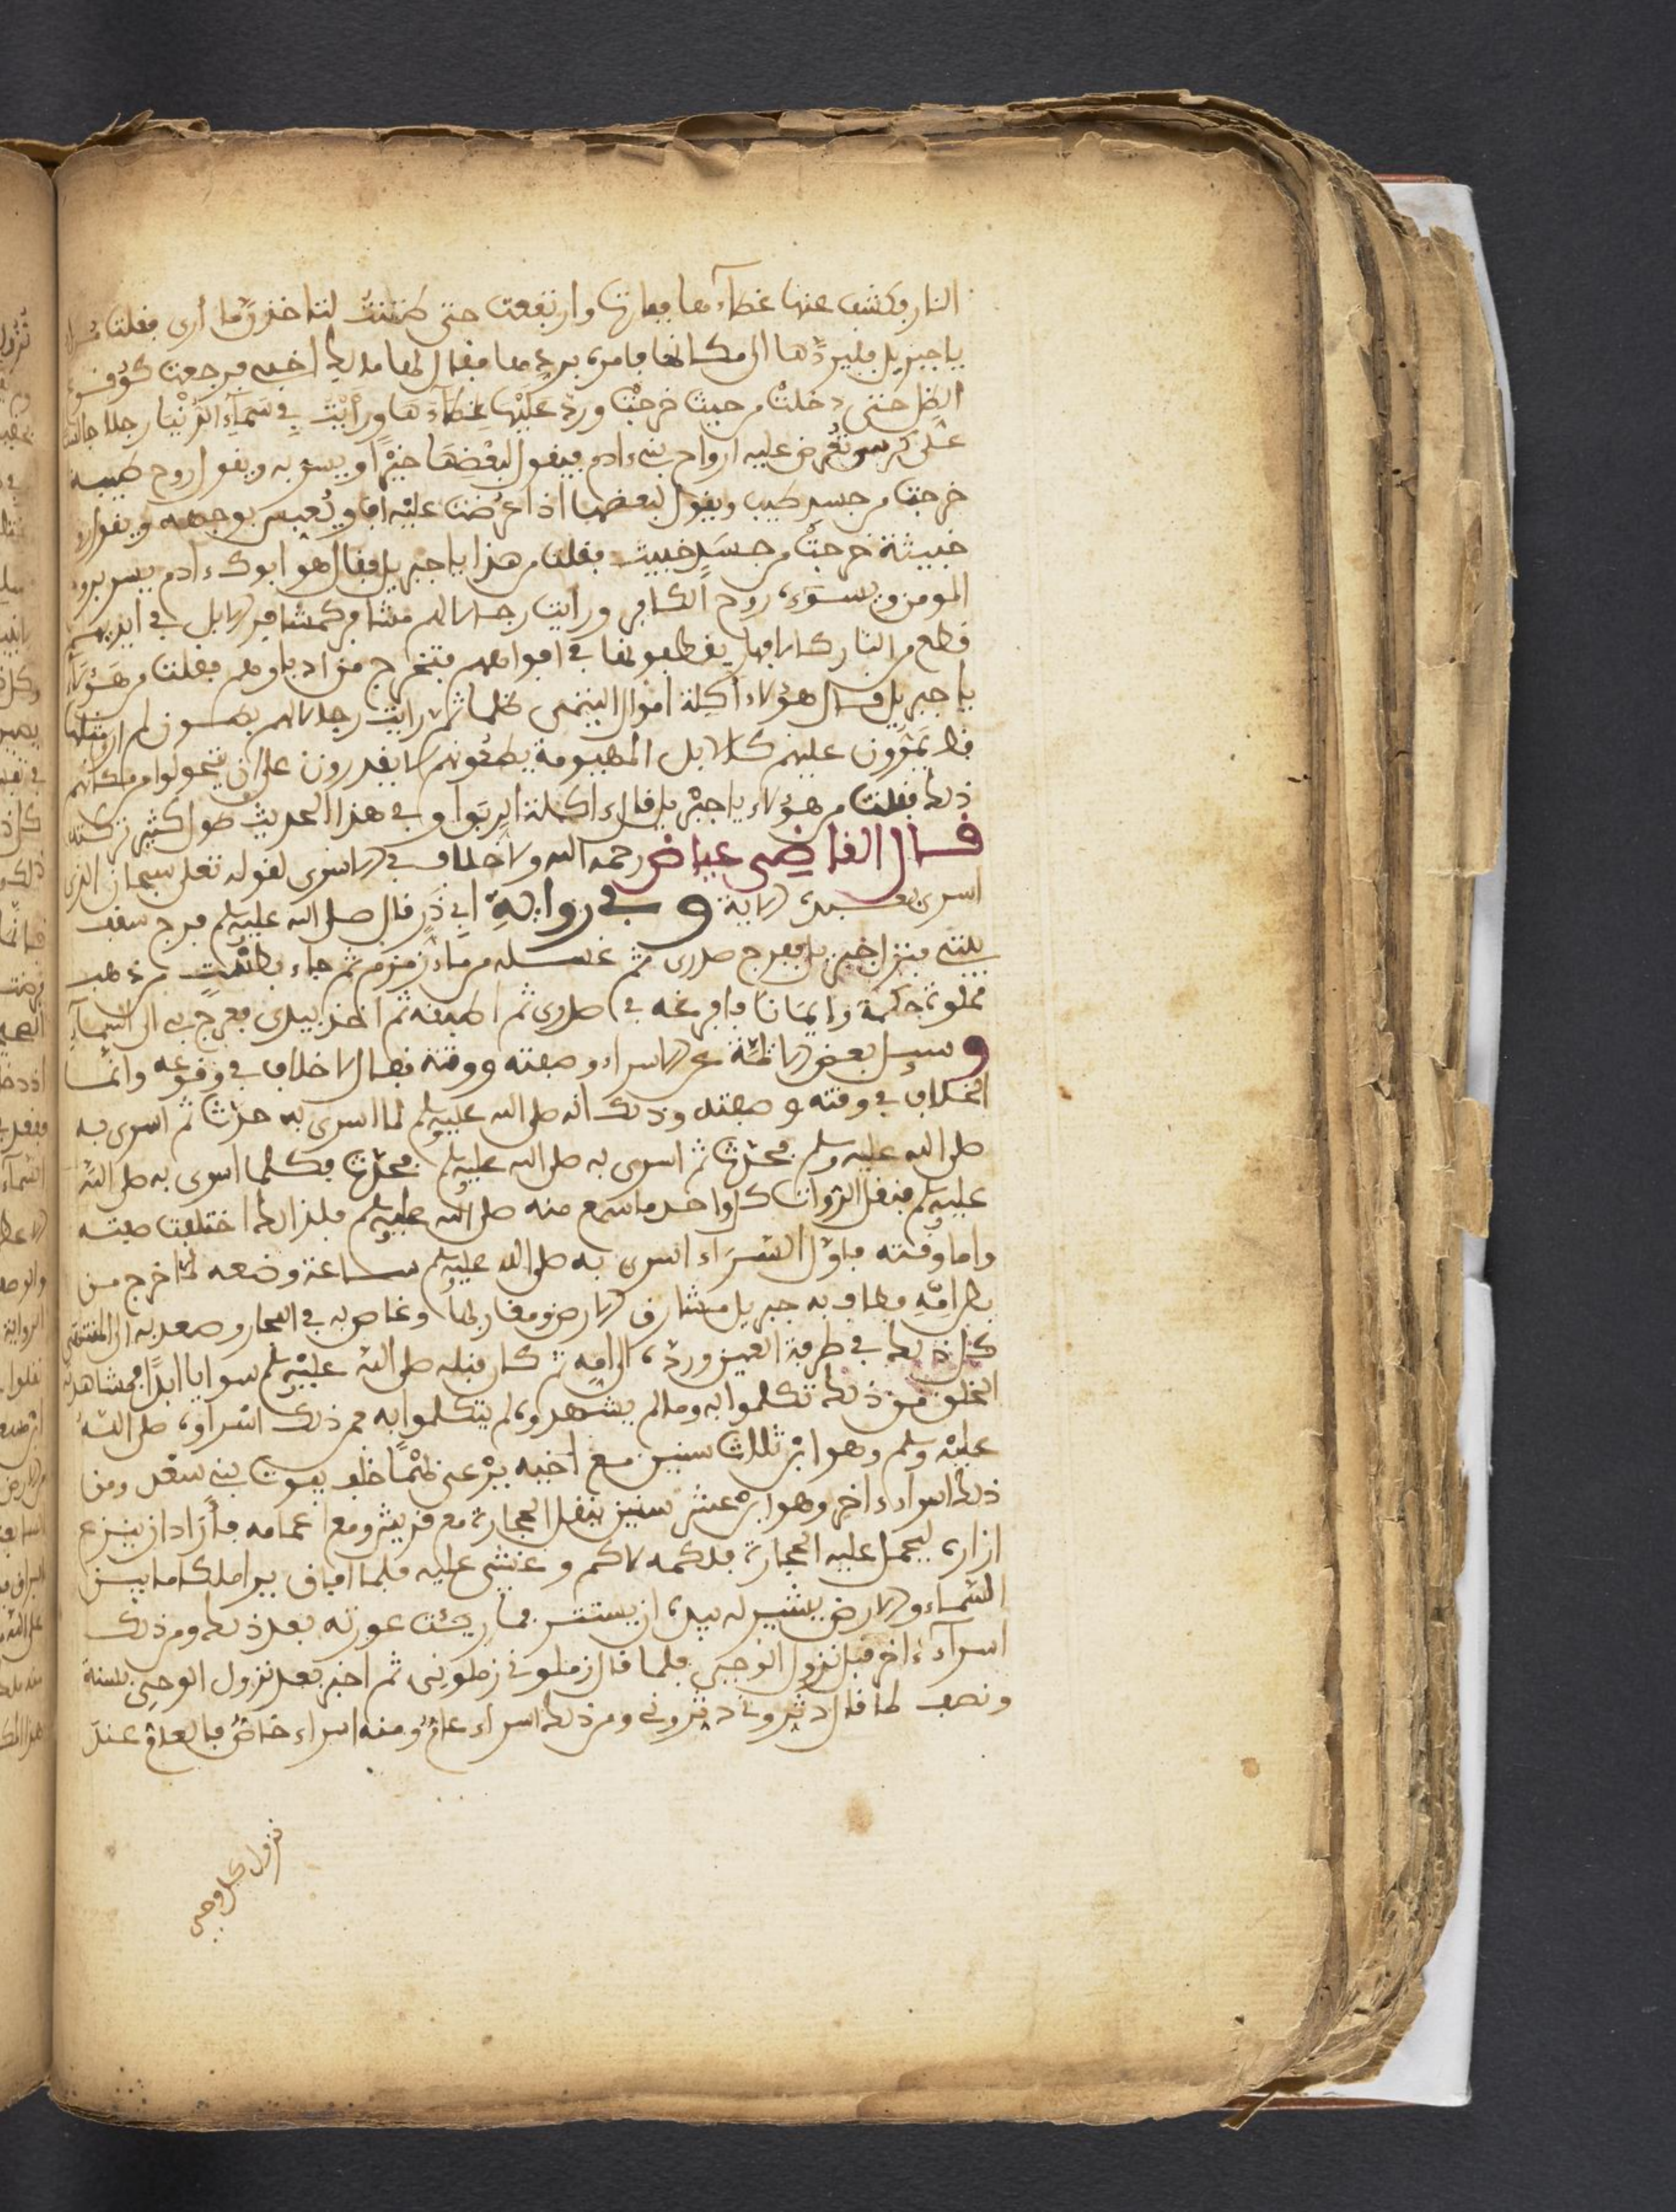 النار فكشف عنها غطاءها ففارت وارتفعت حتى ظننت لتاخذن ما أرى فقلت
يا جبريل فليردها الى مكانها فامره بردها فقال لها مالك اخبى فرجعت كوقوع
الظل حتى دخلت من حيث خرجت ورد عليها غطاءها ورأيت في سماء الدنيا رجلا جالسا
على كرسى تعرض عليه ارواح بنى ءادم فيقول لبعضها خيرا ويسر به ويقول روح طيبة
خرجت من جسد طيب ويقول لبعضها اذا عرضت عليه اف ويعبس بوجهه ويقول روح
خبيثة خرجت من جسد خبيث فقلت من هذا يا جبريل فقال هو ابوك ءادم يسر بروح
المومن ويسوءه روح الكافر ورايت رجالا لهم مشافر كمشافر الابل في ايديهم
قطع من النار كالافهار يقطعونها في افواههم فتخرج من ادبارهم فقلت من هؤلاء
يا جبريل قال هؤلاء أكلة أموال اليتمى ظلما ثم رايت رجالا لهم بطون لم ار مثلها
قط يمرون عليهم كالابل المهيومة يطئونهم لا يقدرون على ان يتحولوا من مكانهم
ذلك فقلت من هؤلاء يا جبريل قال اكلة الربوا وفي هذا الحديث طول كثير تركته
قال القاضى عياض رحمه الله ولا خلاف في الاسرى لقوله تعلى سبحان الذى
اسرى بعبده الاية وفي رواية ابي ذر قال صلى الله عليه وسلم فرج سقف
بيتى فنزل جبريل ففرج صدرى ثم غسله من ماء زمزم ثم جاء بطست من ذهب
مملو حكمة وايمانا فافرغه في صدرى ثم اطبقه ثم اخذ بيدى فعرج بى الى السماء
وسيل بعض الايمة عن الاسراء وصفته ووقته فقال لا خلاف في وقوعه وانما
الخلاف في وقته وصفته وذلك انه صلى الله عليه وسلم لما اسرى به حدث ثم اسرى به
صلى الله عليه وسلم فحدث ثم اسرى به صلى الله عليه وسلم فحدث فكلما اسرى به صلى الله
عليه وسلم فنقل الروات كل واحد ما سمع منه صلى الله عليه وسلم فلذلك اختلفت صفته
واما وقته فاول السراء اسرى به صلى الله عليه وسلم ساعة وضعه لما خرج من
بطن امه فطاف به جبريل مشارق الارض ومغاربها وغاص به في البحار وصعد به الى المنتهى
كل ذلك في طرفة العين ورده الى امه ثم كان قبله صلى الله عليه وسلم سوايا ابدا فمشاهدة
الخلق من ذلك تكلموا به وما لم يشهدوه لم يتكلموا به فمن ذلك اسراوه صلى الله
عليه وسلم وهو ابن ثلاث سنين مع اخيه يرعى غنما خلف بيوت بنى سعد ومن
ذلك اسراء ءاخر وهو ابن عشر سنين ينقل الحجارة مع قريش ومع اعمامه فأراد ان ينزع
ازاره ليحمل عليه الحجارة فلكمه لاكم وغشى عليه فلما افاق يرا ملكا ما بين
السماء والارض يشير له بيده ان يستتر فما ريئت عورته بعد ذلك ومن ذلك
اسراء ءاخر قبل نزول الوحى فلما قال زملونى زملونى ثم اخبر بعد نزول الوحى بسنة
ونصف لما قال دثرونى دثرونى ومن ذلك اسراء عام ومنه اسراء خاص فالعام عند
نزول كل وحى